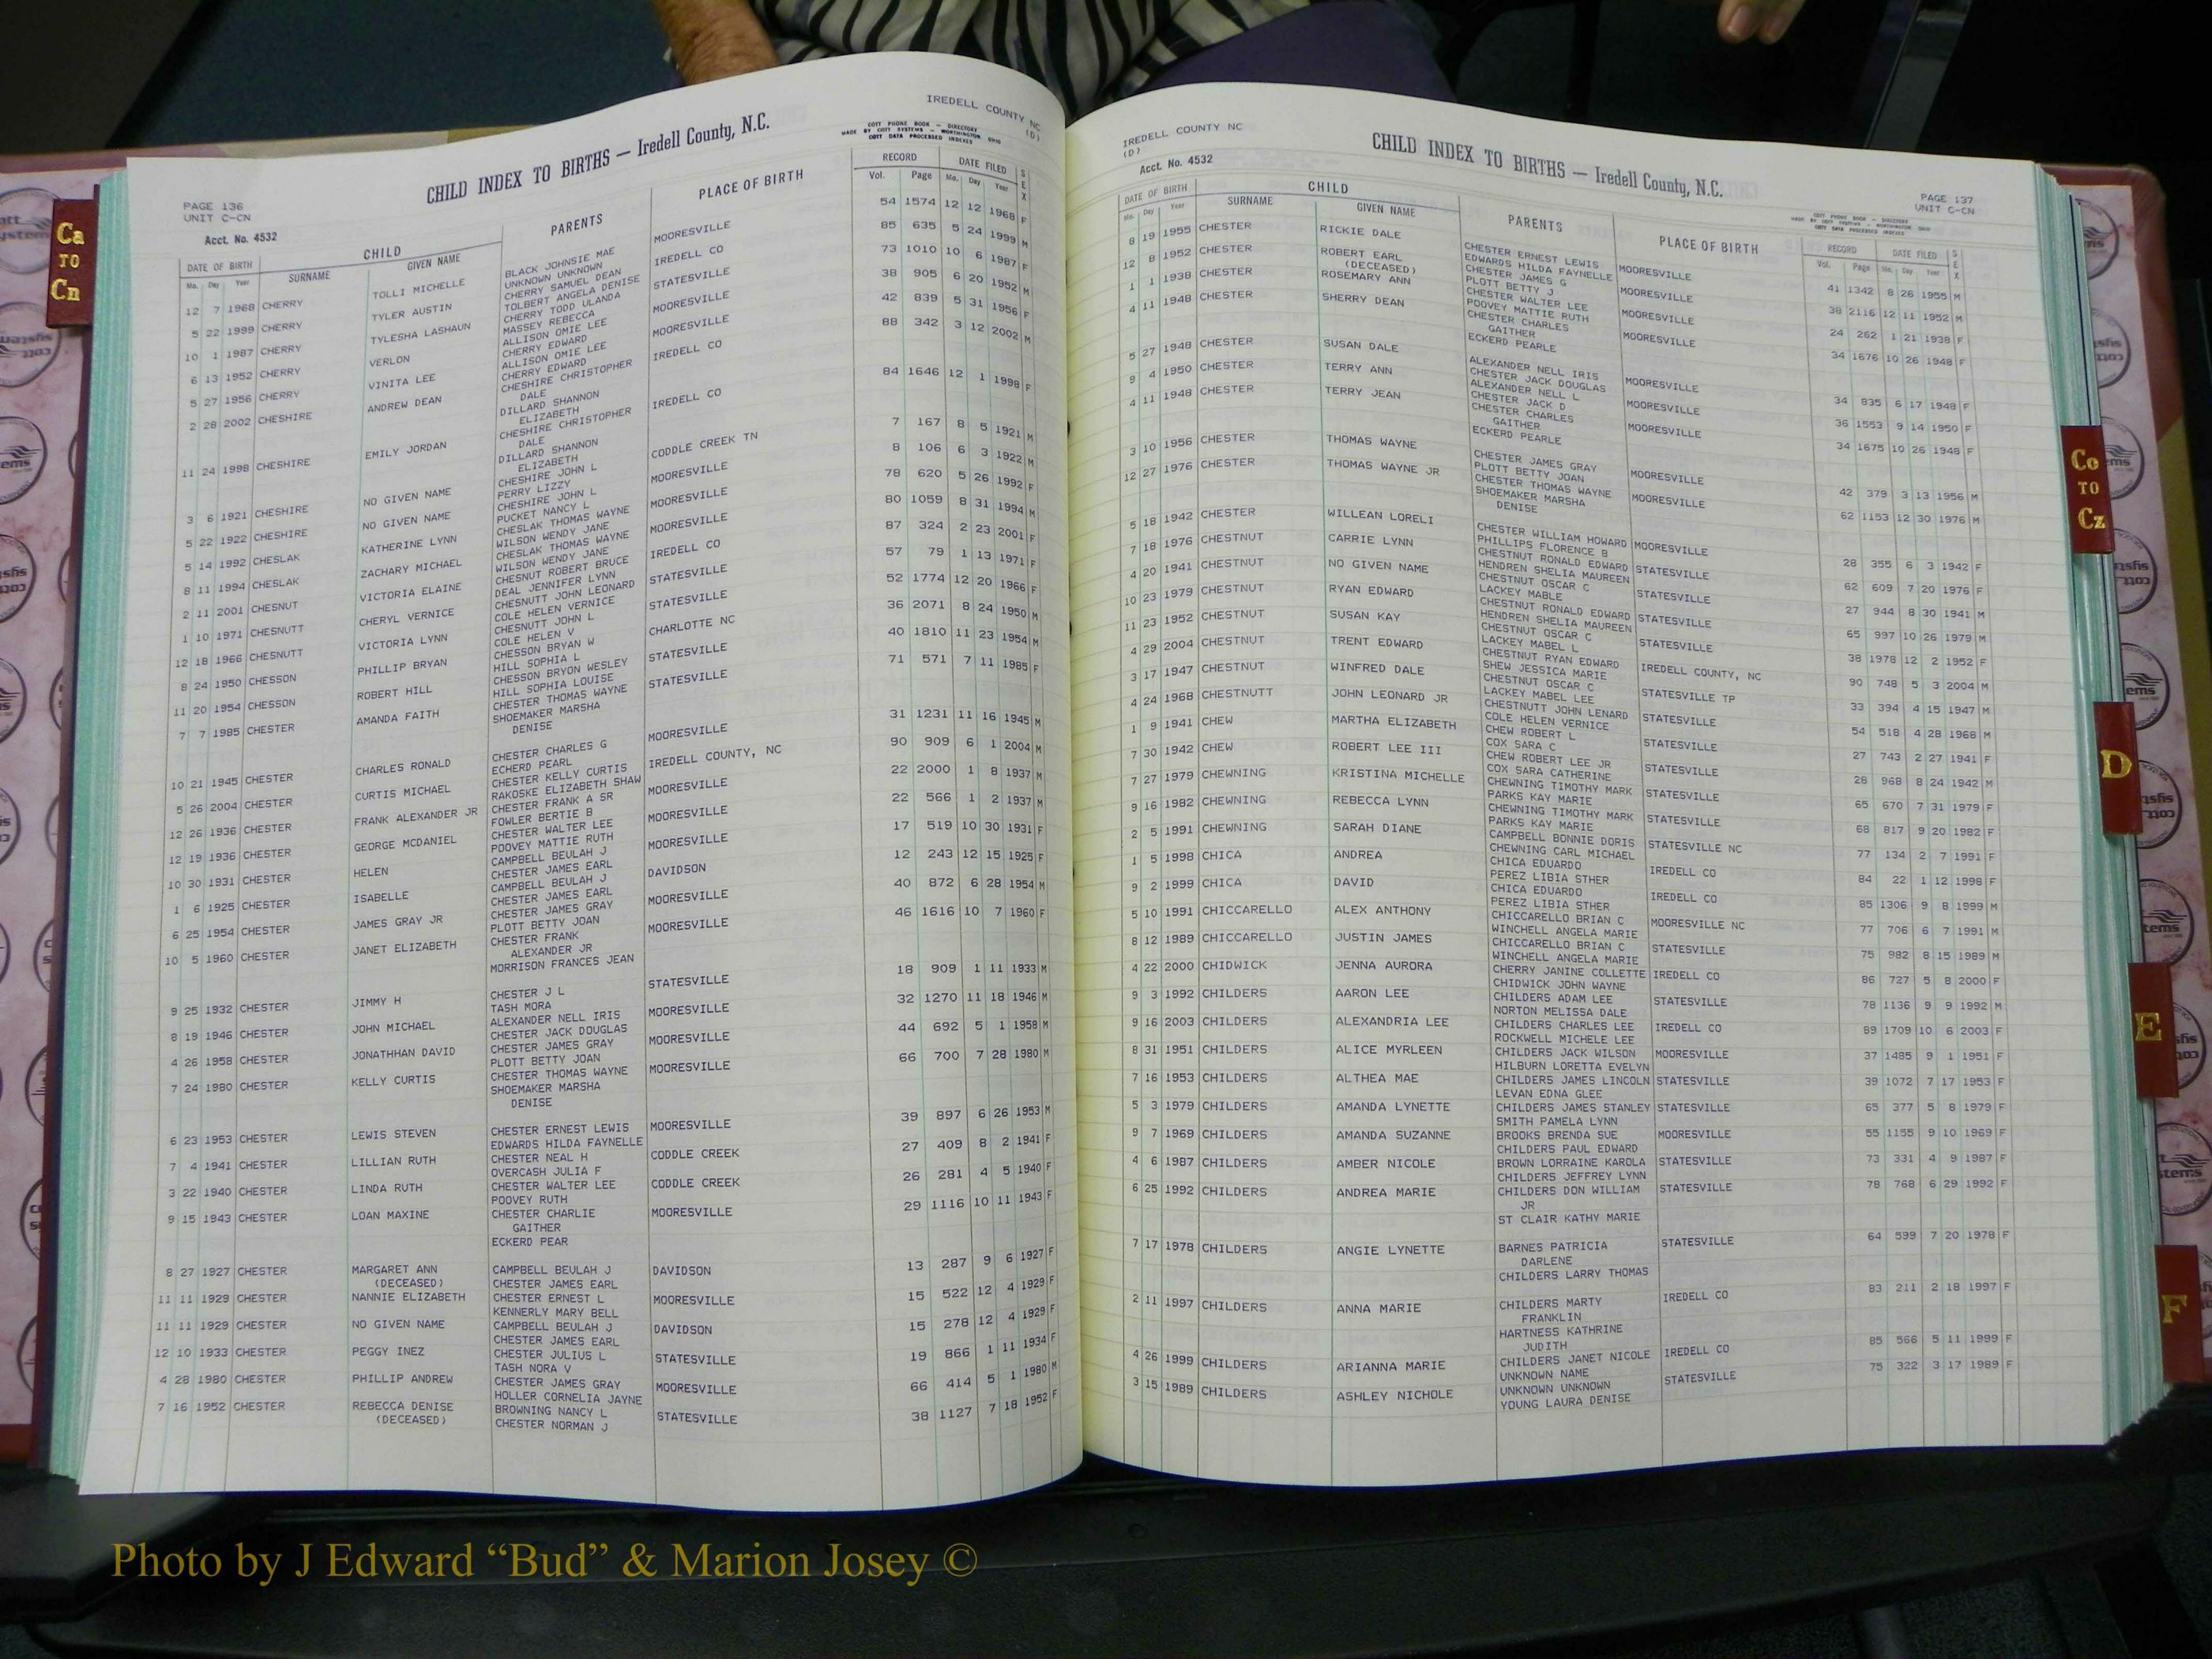 IREDELL COUNTY NC
(D)
COTT PHONE BOOK — DIRECTORY
MADE BY COTT SYSTEMS — WORTHINGTON OHIO
COTT DATA PROCESSED INDEXES
CHILD INDEX TO BIRTHS — Iredell County, N.C.
PAGE 136
UNIT C-CN
Acct. No. 4532
DATE OF BIRTH CHILD PARENTS PLACE OF BIRTH RECORD DATE FILED SEX
Mo. Day Year SURNAME GIVEN NAME Vol. Page Mo. Day Year
12 7 1968 CHERRY TOLLI MICHELLE BLACK JOHNSIE MAE MOORESVILLE 54 1574 12 12 1968 F
UNKNOWN UNKNOWN
5 22 1999 CHERRY TYLER AUSTIN CHERRY SAMUEL DEAN IREDELL CO 85 635 5 24 1999 M
TOLBERT ANGELA DENISE
10 1 1987 CHERRY TYLESHA LASHAUN CHERRY TODD ULANDA STATESVILLE 73 1010 10 6 1987 F
MASSEY REBECCA
6 13 1952 CHERRY VERLON ALLISON OMIE LEE MOORESVILLE 38 905 6 20 1952 M
CHERRY EDWARD
5 27 1956 CHERRY VINITA LEE ALLISON OMIE LEE MOORESVILLE 42 839 5 31 1956 F
CHERRY EDWARD
2 28 2002 CHESHIRE ANDREW DEAN CHESHIRE CHRISTOPHER IREDELL CO 88 342 3 12 2002 M
DALE
DILLARD SHANNON
ELIZABETH
11 24 1998 CHESHIRE EMILY JORDAN CHESHIRE CHRISTOPHER IREDELL CO 84 1646 12 1 1998 F
DALE
DILLARD SHANNON
ELIZABETH
3 6 1921 CHESHIRE NO GIVEN NAME CHESHIRE JOHN L CODDLE CREEK TN 7 167 8 5 1921 M
PERRY LIZZY
5 22 1922 CHESHIRE NO GIVEN NAME CHESHIRE JOHN L MOORESVILLE 8 106 6 3 1922 M
PUCKET NANCY L
5 14 1992 CHESLAK KATHERINE LYNN CHESLAK THOMAS WAYNE MOORESVILLE 78 620 5 26 1992 F
WILSON WENDY JANE
8 11 1994 CHESLAK ZACHARY MICHAEL CHESLAK THOMAS WAYNE MOORESVILLE 80 1059 8 31 1994 M
WILSON WENDY JANE
2 11 2001 CHESNUT VICTORIA ELAINE CHESNUT ROBERT BRUCE IREDELL CO 87 324 2 23 2001 F
DEAL JENNIFER LYNN
1 10 1971 CHESNUTT CHERYL VERNICE CHESNUTT JOHN LEONARD STATESVILLE 57 79 1 13 1971 F
COLE HELEN VERNICE
12 18 1966 CHESNUTT VICTORIA LYNN CHESNUTT JOHN L STATESVILLE 52 1774 12 20 1966 F
COLE HELEN V
8 24 1950 CHESSON PHILLIP BRYAN CHESSON BRYAN W CHARLOTTE NC 36 2071 8 24 1950 M
HILL SOPHIA L
11 20 1954 CHESSON ROBERT HILL CHESSON BRYON WESLEY STATESVILLE 40 1810 11 23 1954 M
HILL SOPHIA LOUISE
7 7 1985 CHESTER AMANDA FAITH CHESTER THOMAS WAYNE STATESVILLE 71 571 7 11 1985 F
SHOEMAKER MARSHA
DENISE
10 21 1945 CHESTER CHARLES RONALD CHESTER CHARLES G MOORESVILLE 31 1231 11 16 1945 M
ECHERD PEARL
5 26 2004 CHESTER CURTIS MICHAEL CHESTER KELLY CURTIS IREDELL COUNTY, NC 90 909 6 1 2004 M
RAKOSKE ELIZABETH SHAW
12 26 1936 CHESTER FRANK ALEXANDER JR CHESTER FRANK A SR MOORESVILLE 22 2000 1 8 1937 M
FOWLER BERTIE B
12 19 1936 CHESTER GEORGE MCDANIEL CHESTER WALTER LEE MOORESVILLE 22 566 1 2 1937 M
POOVEY MATTIE RUTH
10 30 1931 CHESTER HELEN CAMPBELL BEULAH J MOORESVILLE 17 519 10 30 1931 F
CHESTER JAMES EARL
1 6 1925 CHESTER ISABELLE CAMPBELL BEULAH J DAVIDSON 12 243 12 15 1925 F
CHESTER JAMES EARL
6 25 1954 CHESTER JAMES GRAY JR CHESTER JAMES GRAY MOORESVILLE 40 872 6 28 1954 M
PLOTT BETTY JOAN
10 5 1960 CHESTER JANET ELIZABETH CHESTER FRANK MOORESVILLE 46 1616 10 7 1960 F
ALEXANDER JR
MORRISON FRANCES JEAN
9 25 1932 CHESTER JIMMY H CHESTER J L STATESVILLE 18 909 1 11 1933 M
TASH MORA
8 19 1946 CHESTER JOHN MICHAEL ALEXANDER NELL IRIS MOORESVILLE 32 1270 11 18 1946 M
CHESTER JACK DOUGLAS
4 26 1958 CHESTER JONATHHAN DAVID CHESTER JAMES GRAY MOORESVILLE 44 692 5 1 1958 M
PLOTT BETTY JOAN
7 24 1980 CHESTER KELLY CURTIS CHESTER THOMAS WAYNE MOORESVILLE 66 700 7 28 1980 M
SHOEMAKER MARSHA
DENISE
6 23 1953 CHESTER LEWIS STEVEN CHESTER ERNEST LEWIS MOORESVILLE 39 897 6 26 1953 M
EDWARDS HILDA FAYNELLE
7 4 1941 CHESTER LILLIAN RUTH CHESTER NEAL H CODDLE CREEK 27 409 8 2 1941 F
OVERCASH JULIA F
3 22 1940 CHESTER LINDA RUTH CHESTER WALTER LEE CODDLE CREEK 26 281 4 5 1940 F
POOVEY RUTH
9 15 1943 CHESTER LOAN MAXINE CHESTER CHARLIE MOORESVILLE 29 1116 10 11 1943 F
GAITHER
ECKERD PEAR
8 27 1927 CHESTER MARGARET ANN CAMPBELL BEULAH J DAVIDSON 13 287 9 6 1927 F
(DECEASED) CHESTER JAMES EARL
11 11 1929 CHESTER NANNIE ELIZABETH CHESTER ERNEST L MOORESVILLE 15 522 12 4 1929 F
KENNERLY MARY BELL
11 11 1929 CHESTER NO GIVEN NAME CAMPBELL BEULAH J DAVIDSON 15 278 12 4 1929 F
CHESTER JAMES EARL
12 10 1933 CHESTER PEGGY INEZ CHESTER JULIUS L STATESVILLE 19 866 1 11 1934 F
TASH NORA V
4 28 1980 CHESTER PHILLIP ANDREW CHESTER JAMES GRAY MOORESVILLE 66 414 5 1 1980 M
HOLLER CORNELIA JAYNE
7 16 1952 CHESTER REBECCA DENISE BROWNING NANCY L STATESVILLE 38 1127 7 18 1952 F
(DECEASED) CHESTER NORMAN J
IREDELL COUNTY NC
(D)
Acct. No. 4532
CHILD INDEX TO BIRTHS — Iredell County, N.C.
PAGE 137
UNIT C-CN
COTT PHONE BOOK — DIRECTORY
MADE BY COTT SYSTEMS — WORTHINGTON OHIO
COTT DATA PROCESSED INDEXES
DATE OF BIRTH CHILD PARENTS PLACE OF BIRTH RECORD DATE FILED SEX
Mo. Day Year SURNAME GIVEN NAME Vol. Page Mo. Day Year
8 19 1955 CHESTER RICKIE DALE CHESTER ERNEST LEWIS MOORESVILLE 41 1342 8 26 1955 M
EDWARDS HILDA FAYNELLE
12 8 1952 CHESTER ROBERT EARL CHESTER JAMES G MOORESVILLE 38 2116 12 11 1952 M
(DECEASED) PLOTT BETTY J
1 1 1938 CHESTER ROSEMARY ANN CHESTER WALTER LEE MOORESVILLE 24 262 1 21 1938 F
POOVEY MATTIE RUTH
4 11 1948 CHESTER SHERRY DEAN CHESTER CHARLES MOORESVILLE 34 1676 10 26 1948 F
GAITHER
ECKERD PEARLE
5 27 1948 CHESTER SUSAN DALE ALEXANDER NELL IRIS MOORESVILLE 34 835 6 17 1948 F
CHESTER JACK DOUGLAS
9 4 1950 CHESTER TERRY ANN ALEXANDER NELL L MOORESVILLE 36 1553 9 14 1950 F
CHESTER JACK D
4 11 1948 CHESTER TERRY JEAN CHESTER CHARLES MOORESVILLE 34 1675 10 26 1948 F
GAITHER
ECKERD PEARLE
3 10 1956 CHESTER THOMAS WAYNE CHESTER JAMES GRAY MOORESVILLE 42 379 3 13 1956 M
PLOTT BETTY JOAN
12 27 1976 CHESTER THOMAS WAYNE JR CHESTER THOMAS WAYNE MOORESVILLE 62 1153 12 30 1976 M
SHOEMAKER MARSHA
DENISE
5 18 1942 CHESTER WILLEAN LORELI CHESTER WILLIAM HOWARD MOORESVILLE 28 355 6 3 1942 F
PHILLIPS FLORENCE B
7 18 1976 CHESTNUT CARRIE LYNN CHESTNUT RONALD EDWARD STATESVILLE 62 609 7 20 1976 F
HENDREN SHELIA MAUREEN
4 20 1941 CHESTNUT NO GIVEN NAME CHESTNUT OSCAR C STATESVILLE 27 944 8 30 1941 M
LACKEY MABLE
10 23 1979 CHESTNUT RYAN EDWARD CHESTNUT RONALD EDWARD STATESVILLE 65 997 10 26 1979 M
HENDREN SHELIA MAUREEN
11 23 1952 CHESTNUT SUSAN KAY CHESTNUT OSCAR C STATESVILLE 38 1978 12 2 1952 F
LACKEY MABEL L
4 29 2004 CHESTNUT TRENT EDWARD CHESTNUT RYAN EDWARD IREDELL COUNTY, NC 90 748 5 3 2004 M
SHEW JESSICA MARIE
3 17 1947 CHESTNUT WINFRED DALE CHESTNUT OSCAR C STATESVILLE TP 33 394 4 15 1947 M
LACKEY MABEL LEE
4 24 1968 CHESTNUTT JOHN LEONARD JR CHESTNUTT JOHN LENARD STATESVILLE 54 518 4 28 1968 M
COLE HELEN VERNICE
1 9 1941 CHEW MARTHA ELIZABETH CHEW ROBERT L STATESVILLE 27 743 2 27 1941 F
COX SARA C
7 30 1942 CHEW ROBERT LEE III CHEW ROBERT LEE JR STATESVILLE 28 968 8 24 1942 M
COX SARA CATHERINE
7 27 1979 CHEWNING KRISTINA MICHELLE CHEWNING TIMOTHY MARK STATESVILLE 65 670 7 31 1979 F
PARKS KAY MARIE
9 16 1982 CHEWNING REBECCA LYNN CHEWNING TIMOTHY MARK STATESVILLE 68 817 9 20 1982 F
PARKS KAY MARIE
2 5 1991 CHEWNING SARAH DIANE CAMPBELL BONNIE DORIS STATESVILLE NC 77 134 2 7 1991 F
CHEWNING CARL MICHAEL
1 5 1998 CHICA ANDREA CHICA EDUARDO IREDELL CO 84 22 1 12 1998 F
PEREZ LIBIA STHER
9 2 1999 CHICA DAVID CHICA EDUARDO IREDELL CO 85 1306 9 8 1999 M
PEREZ LIBIA STHER
5 10 1991 CHICCARELLO ALEX ANTHONY CHICCARELLO BRIAN C MOORESVILLE NC 77 706 6 7 1991 M
WINCHELL ANGELA MARIE
8 12 1989 CHICCARELLO JUSTIN JAMES CHICCARELLO BRIAN C STATESVILLE 75 982 8 15 1989 M
WINCHELL ANGELA MARIE
4 22 2000 CHIDWICK JENNA AURORA CHERRY JANINE COLLETTE IREDELL CO 86 727 5 8 2000 F
CHIDWICK JOHN WAYNE
9 3 1992 CHILDERS AARON LEE CHILDERS ADAM LEE STATESVILLE 78 1136 9 9 1992 M
NORTON MELISSA DALE
9 16 2003 CHILDERS ALEXANDRIA LEE CHILDERS CHARLES LEE IREDELL CO 89 1709 10 6 2003 F
ROCKWELL MICHELE LEE
8 31 1951 CHILDERS ALICE MYRLEEN CHILDERS JACK WILSON MOORESVILLE 37 1485 9 1 1951 F
HILBURN LORETTA EVELYN
7 16 1953 CHILDERS ALTHEA MAE CHILDERS JAMES LINCOLN STATESVILLE 39 1072 7 17 1953 F
LEVAN EDNA GLEE
5 3 1979 CHILDERS AMANDA LYNETTE CHILDERS JAMES STANLEY STATESVILLE 65 377 5 8 1979 F
SMITH PAMELA LYNN
9 7 1969 CHILDERS AMANDA SUZANNE BROOKS BRENDA SUE MOORESVILLE 55 1155 9 10 1969 F
CHILDERS PAUL EDWARD
4 6 1987 CHILDERS AMBER NICOLE BROWN LORRAINE KAROLA STATESVILLE 73 331 4 9 1987 F
CHILDERS JEFFREY LYNN
6 25 1992 CHILDERS ANDREA MARIE CHILDERS DON WILLIAM STATESVILLE 78 768 6 29 1992 F
JR
ST CLAIR KATHY MARIE
7 17 1978 CHILDERS ANGIE LYNETTE BARNES PATRICIA STATESVILLE 64 599 7 20 1978 F
DARLENE
CHILDERS LARRY THOMAS
2 11 1997 CHILDERS ANNA MARIE CHILDERS MARTY IREDELL CO 83 211 2 18 1997 F
FRANKLIN
HARTNESS KATHRINE
JUDITH
4 26 1999 CHILDERS ARIANNA MARIE CHILDERS JANET NICOLE IREDELL CO 85 566 5 11 1999 F
UNKNOWN NAME
3 15 1989 CHILDERS ASHLEY NICHOLE UNKNOWN UNKNOWN STATESVILLE 75 322 3 17 1989 F
YOUNG LAURA DENISE
Ca
TO
Cn
Co
TO
Cz
D
E
F
Photo by J Edward “Bud” & Marion Josey ©